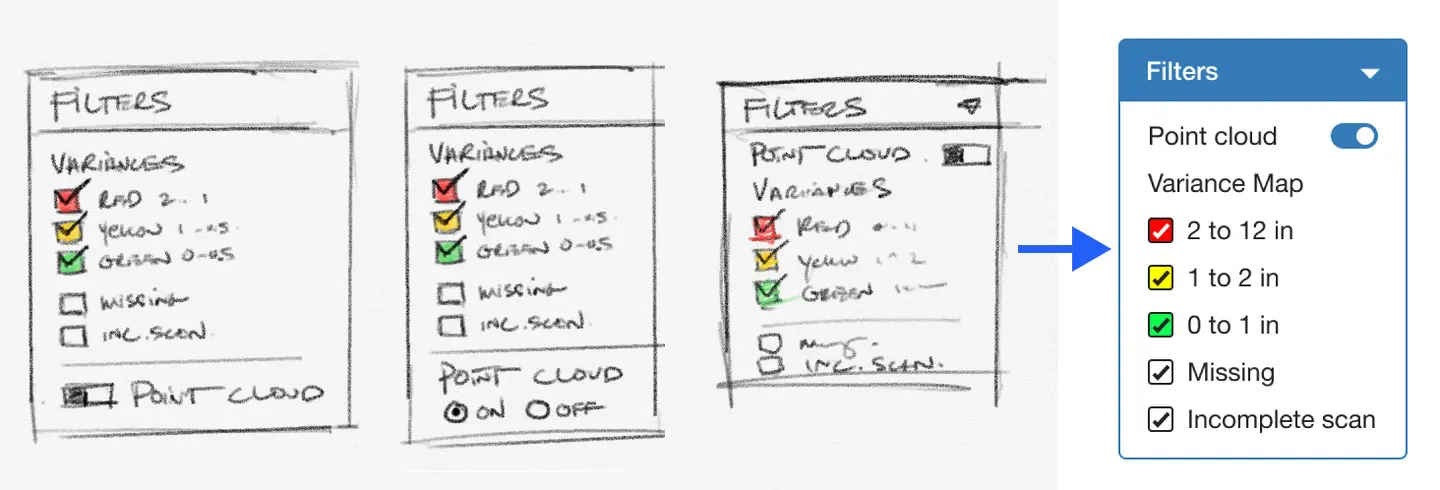 FILTERS
VARIANCES
RED 2.. 1
YELLOW 1 -0.5
GREEN 0-0.5
MISSING
INC. SCAN.
POINT CLOUD
FILTERS
VARIANCES
RED 2.. 1
YELLOW 1 -0.5
GREEN 0-0.5
MISSING
INC. SCAN.
POINT CLOUD
ON OFF
FILTERS
POINT CLOUD
VARIANCES
RED
YELLOW
GREEN
INC. SCAN.
Filters
Point cloud
Variance Map
2 to 12 in
1 to 2 in
0 to 1 in
Missing
Incomplete scan